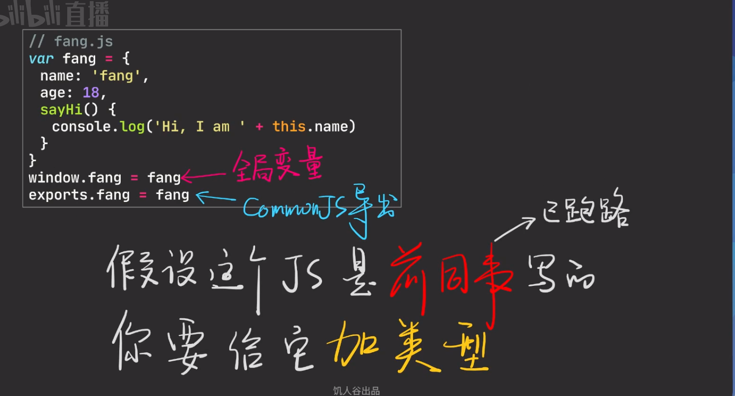 bilibili直播
// fang.js
var fang = {
name: 'fang',
age: 18,
sayHi() {
console.log('Hi, I am ' + this.name)
}
}
window.fang = fang
全局变量
exports.fang = fang
CommonJS导出
已跑路
假设这个JS是前同事写的
你要给它加类型
饥人谷出品